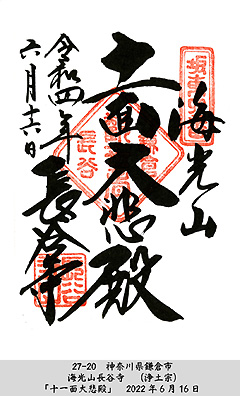 海光山
十一面大悲殿
長谷寺
令和四年
六月十六日
長谷
27-20 神奈川県鎌倉市
海光山長谷寺 (浄土宗)
「十一面大悲殿」 2022年6月16日